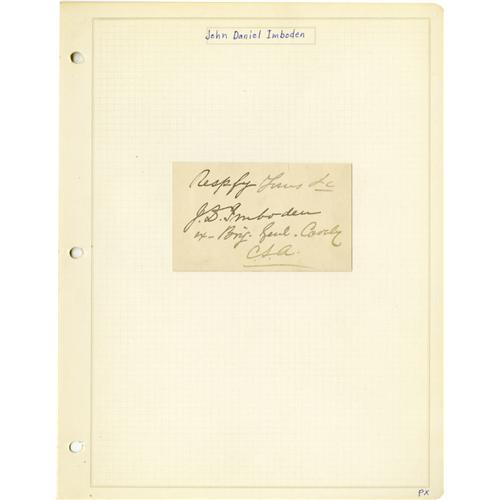 John Daniel Imboden
Respfy Yours &c
J.D. Imboden
ex-Brig. Genl. Cavly
C.S.A.
PX